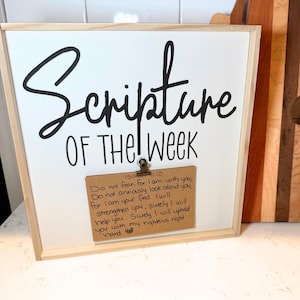 Scripture
OF THE WEEK
Do not fear, for I am with you,
Do not anxiously look about you,
for I am your God. I will
strengthen you, surely I will
help you. Surely I will uphold
you with my righteous right
hand